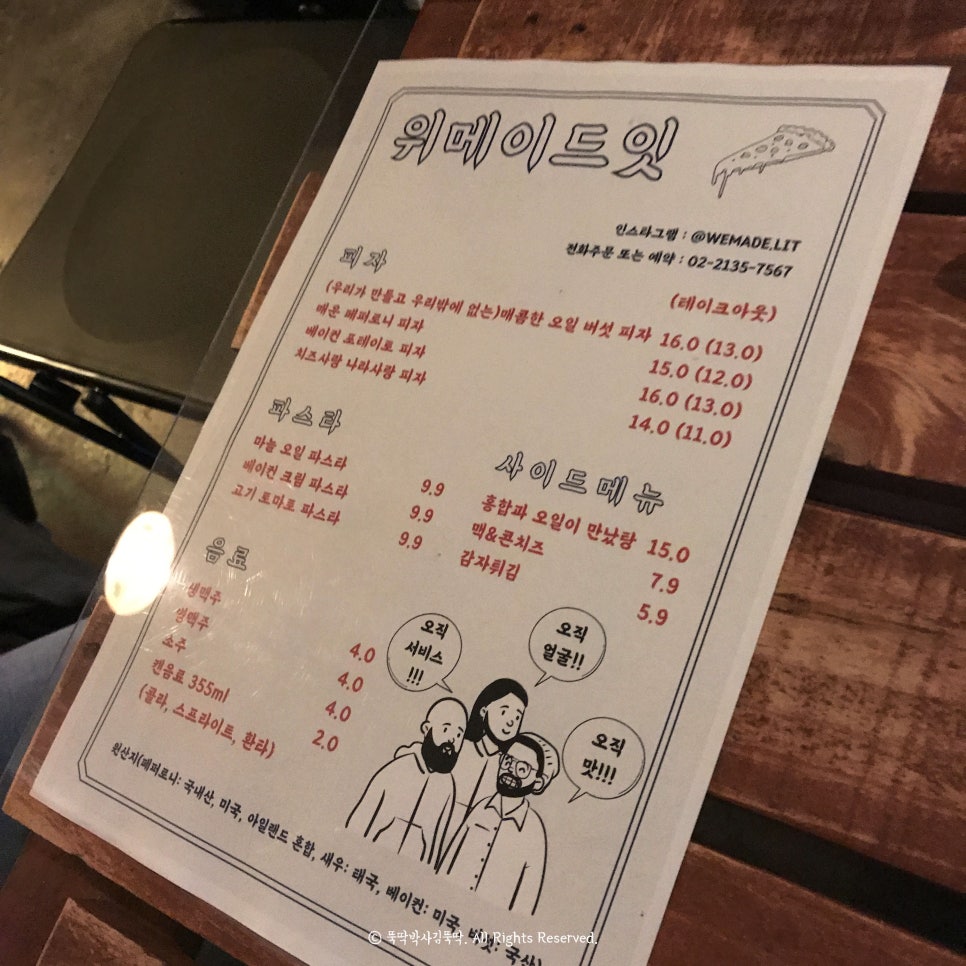 위메이드잇
인스타그램 : @WEMADE.LIT
전화주문 또는 예약 : 02-2135-7567
피자
(테이크아웃)
(우리가 만들고 우리밖에 없는)매콤한 오일 버섯 피자 16.0 (13.0)
매운 페퍼로니 피자 15.0 (12.0)
베이컨 포테이토 피자 16.0 (13.0)
치즈사랑 나라사랑 피자 14.0 (11.0)
파스타
마늘 오일 파스타 9.9
베이컨 크림 파스타 9.9
고기 토마토 파스타 9.9
사이드메뉴
홍합과 오일이 만났탕 15.0
맥&콘치즈 7.9
감자튀김 5.9
음료
생맥주 4.0
병맥주 4.0
소주 4.0
캔음료 355ml 2.0
(콜라, 스프라이트, 환타)
오직
서비스
!!!
오직
얼굴!!
오직
맛!!!
원산지(페퍼로니: 국내산, 미국, 아일랜드 혼합, 새우: 태국, 베이컨: 미국, 버섯: 국산)
© 뚝딱박사김뚝딱. All Rights Reserved.